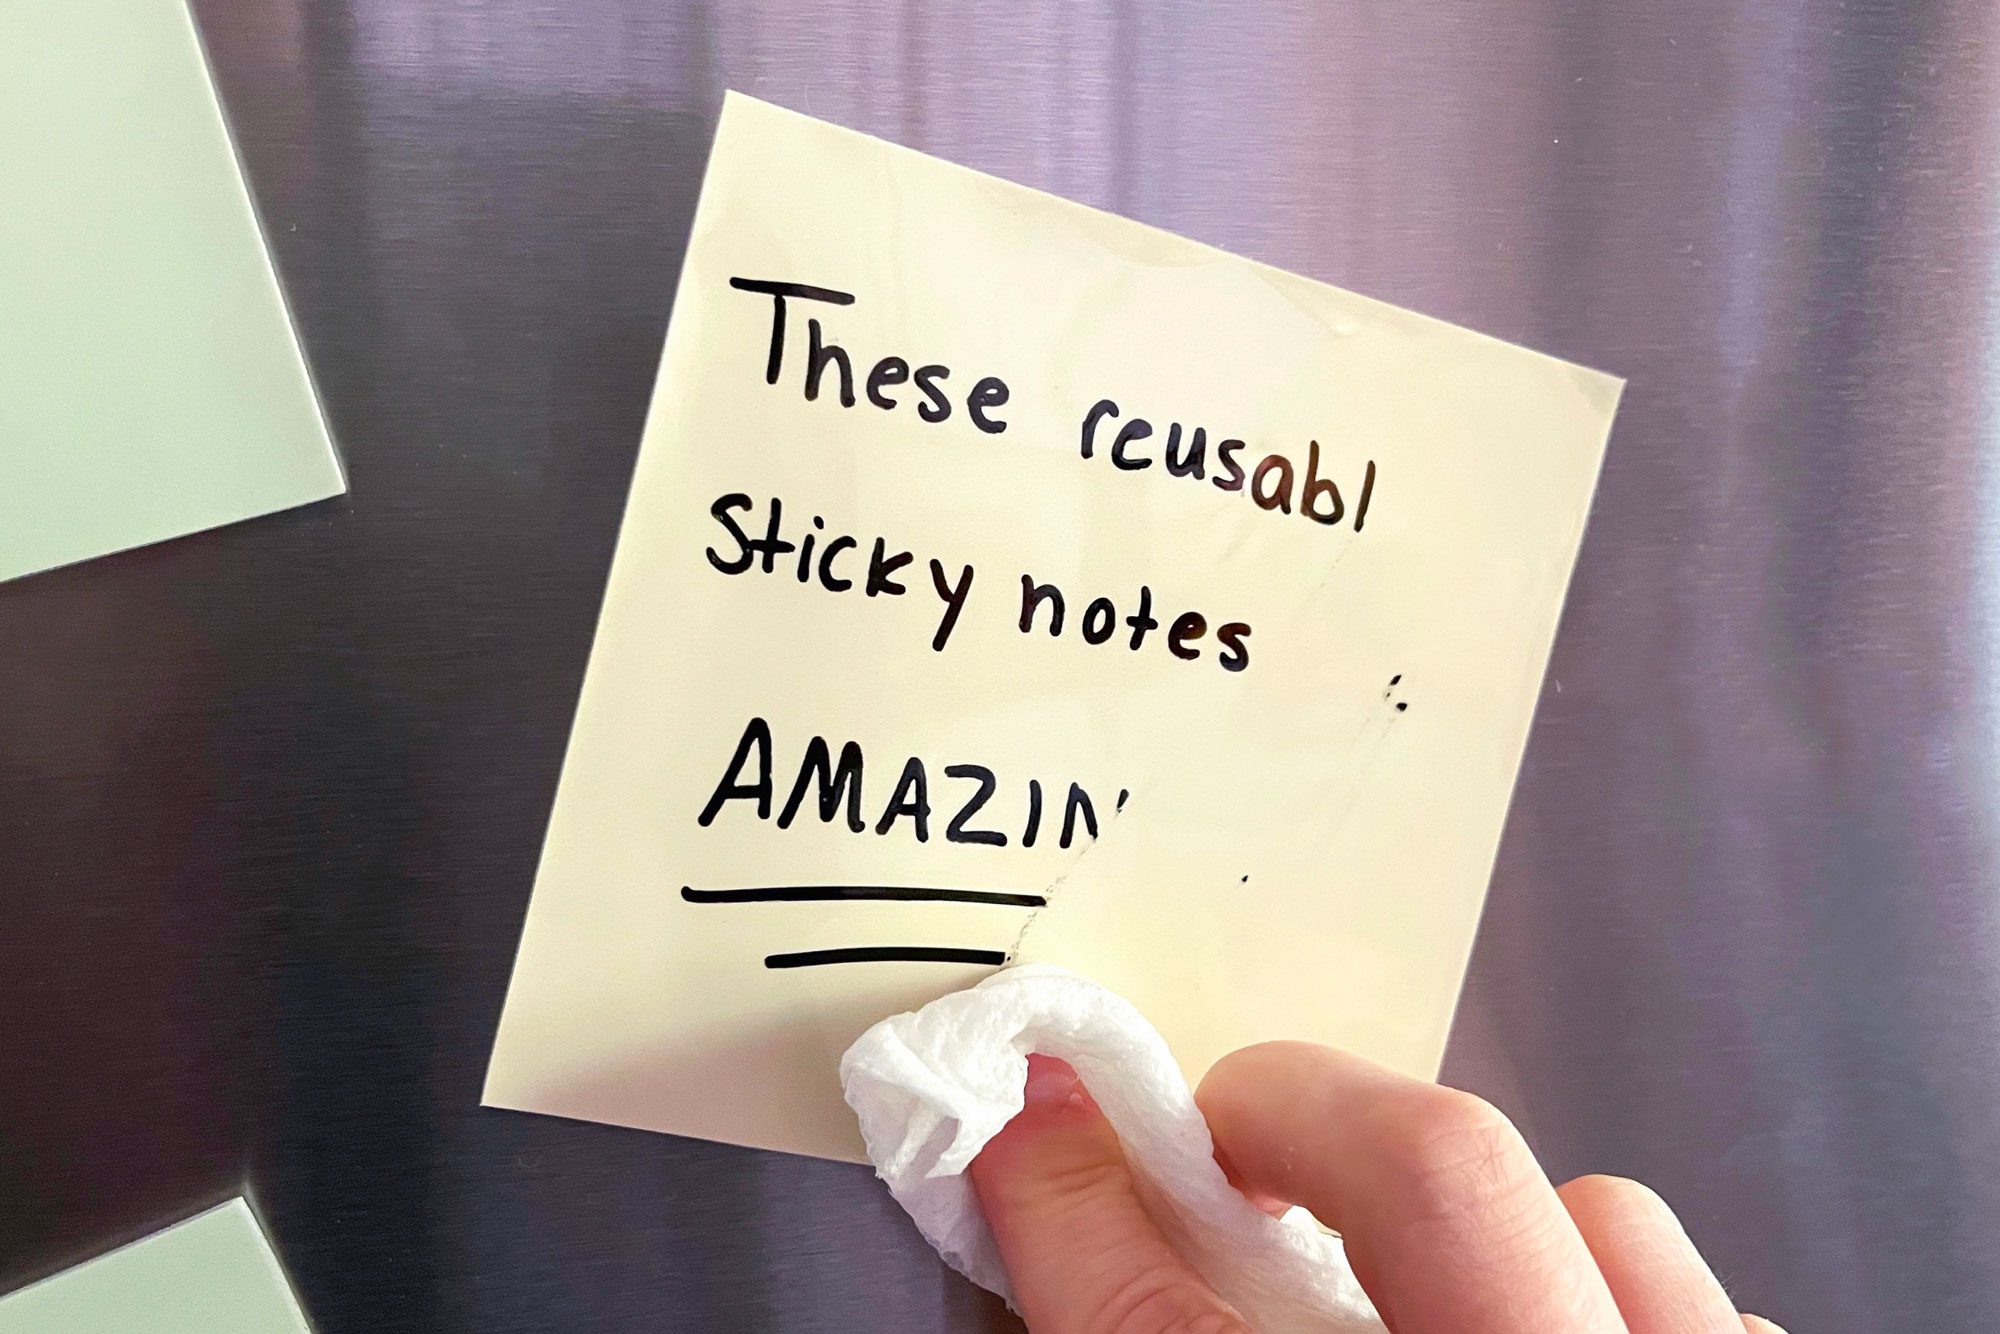 These reusabl
Sticky notes
AMAZIN